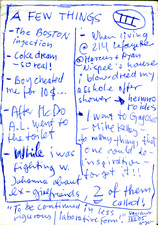 A FEW THINGS
III
- The BOSTON
injection
- Coke dream
- so real!
- Boy cheated
me for 10$...
- After McDo
A.L. went to
the toilet
- While i was
fighting w.
Johanna about
ex-girlfriends
- When living
@ 214 Lafayette
@ Marcus &
house
i blowdried my
asshole after
shower →
- I want to
- Mike Kelley
- So many things that
one could be
inspiration
for pt !!!
2 of them
called!
"To be continued in less
rigurous / laborative form!"